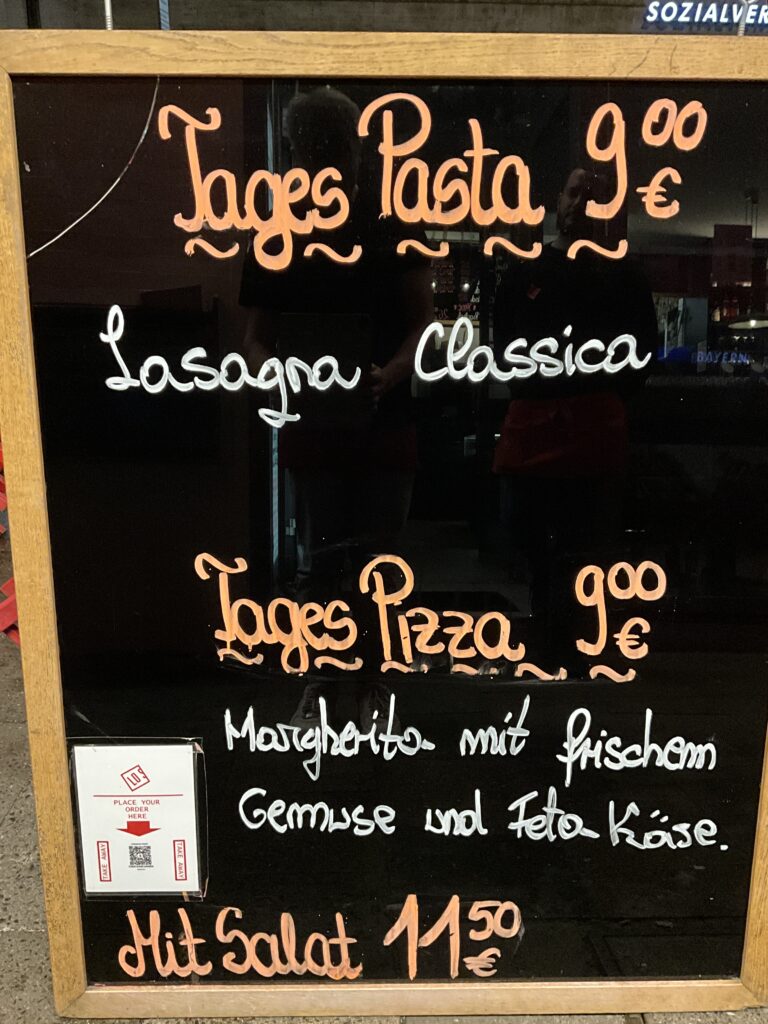 SOZIALVER
Tages Pasta 9 00 €
Lasagna Classica
BAYERN
Tages Pizza 9 00 €
Margherita mit frischem
Gemuse und Feta Käse.
PLACE YOUR
ORDER
HERE
TAKE AWAY
TAKE AWAY
Mit Salat 11 50 €